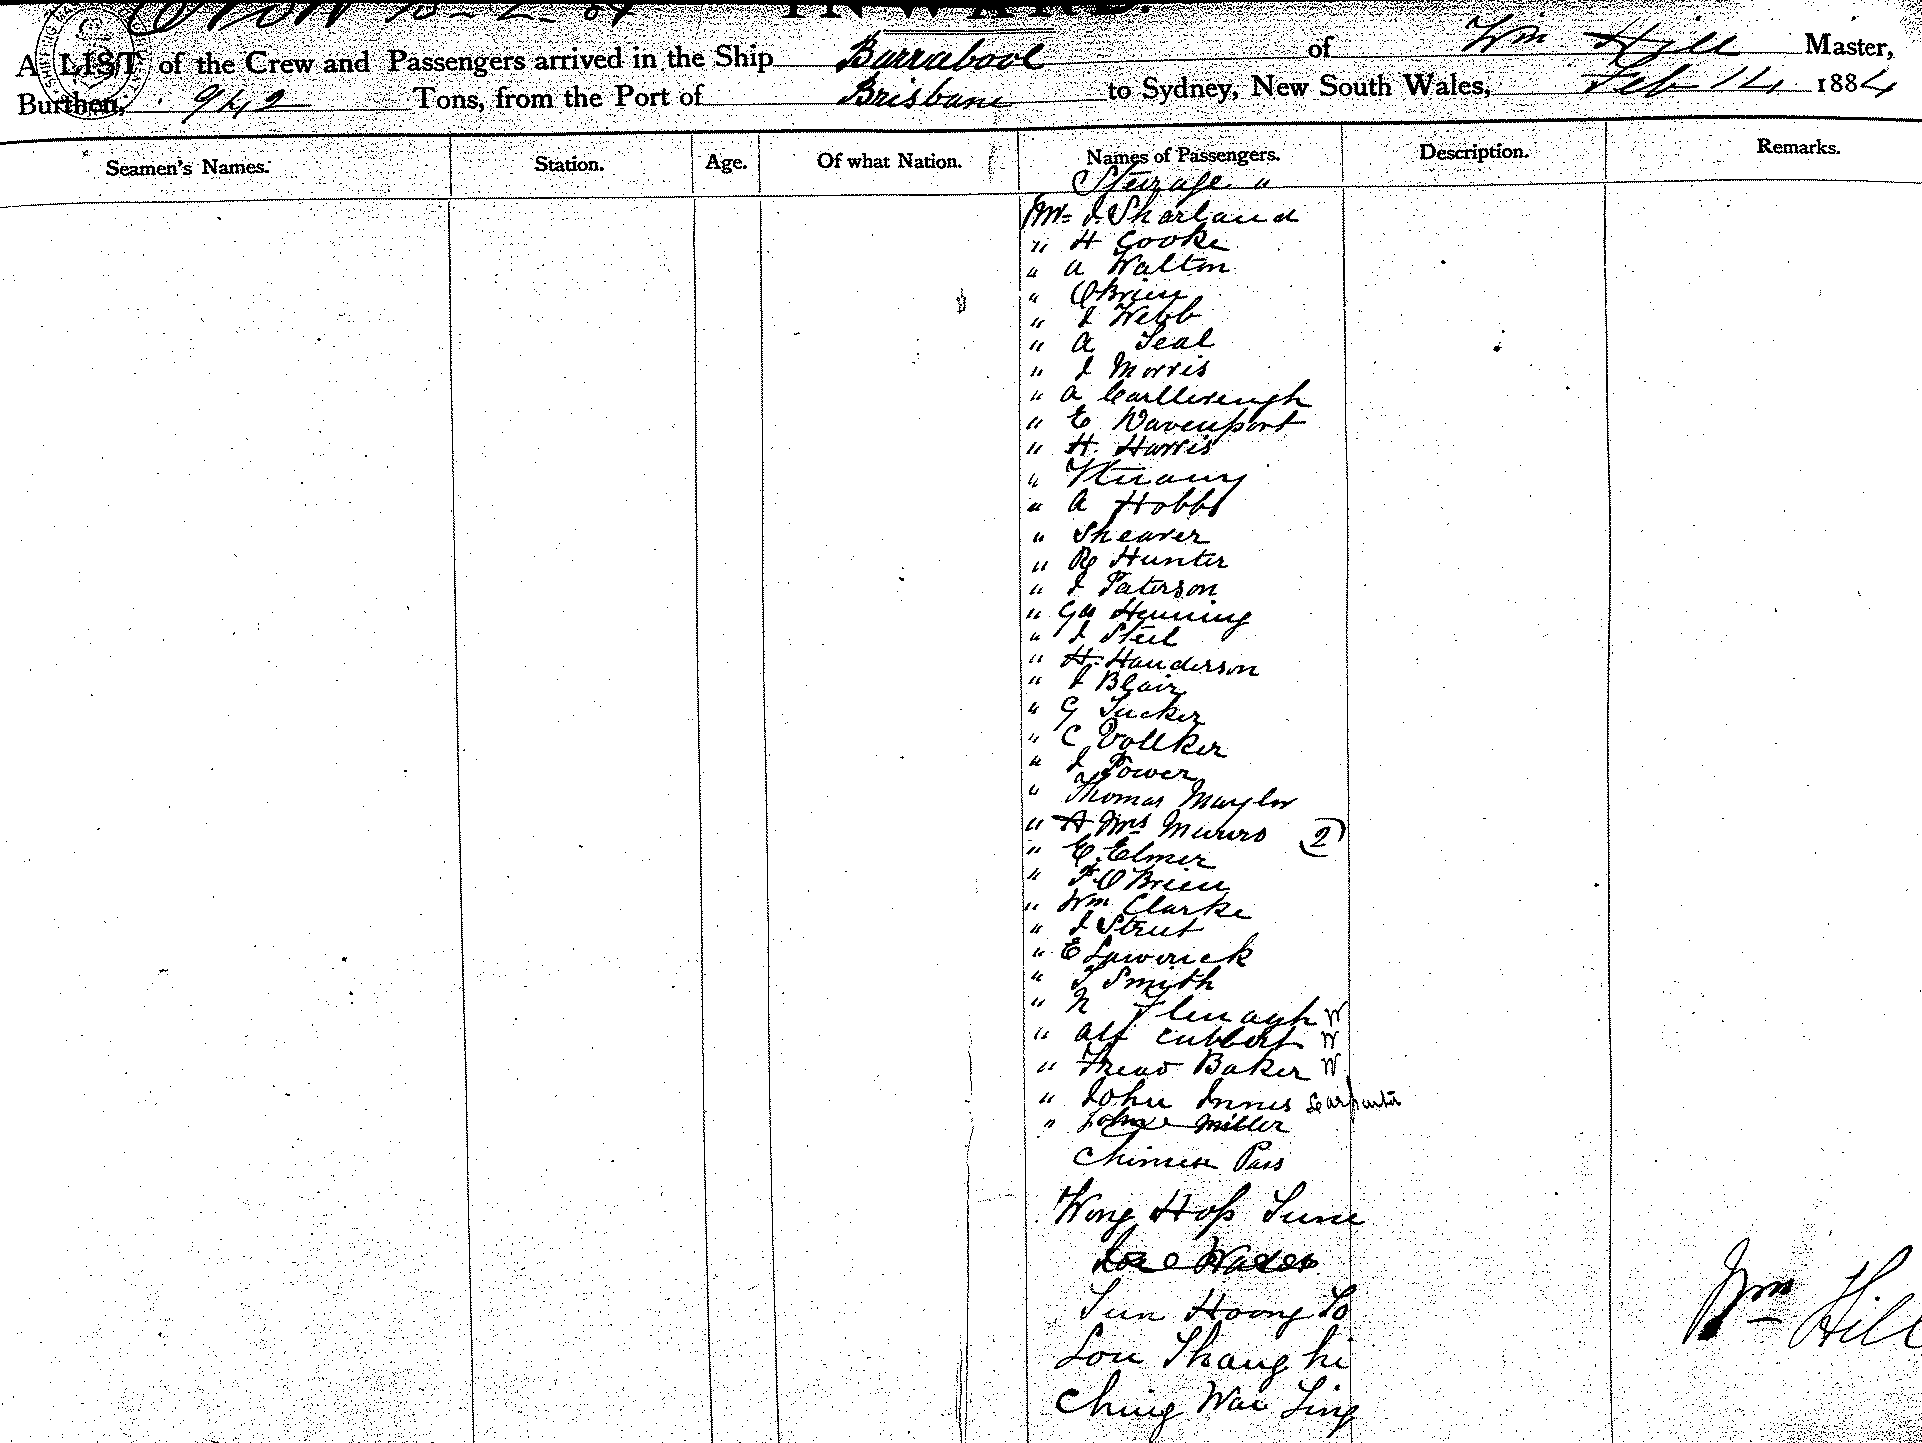 INWARD.
A LIST of the Crew and Passengers arrived in the Ship Burrabool of Wm Hill Master,
Burthen, 942 Tons, from the Port of Brisbane to Sydney, New South Wales, Feb 14 1884
Seamen's Names. Station. Age. Of what Nation. Names of Passengers. Description. Remarks.
Steerage "
Mr J. Sharland
" H Cooke
" A Walton
" O'Brien
" J Webb
" A Teal
" J Morris
" A
" E Davenport
" H. Harris
"
" A Hobbs
" Shearer
" Rg Hunter
" J Paterson
" Geo Henning
" J Steel
" H. Handerson
" J Blair
" G Tucker
" C Vollker
" J Power
" Thomas Maylor
" A Mrs Munro 2
" E. Elmer
" F O'Brien
" Wm Clarke
" J Strut
" E Lawrick
" T Smith
" N W
" Alf Cubbert W
" Fread Baker W
" John Innes Carpenter
" John Miller
Chinese Pass
Wong Hop Tune
Sun Hoong To
Lou Shang hi
Ching Wai Ling
Wm Hill